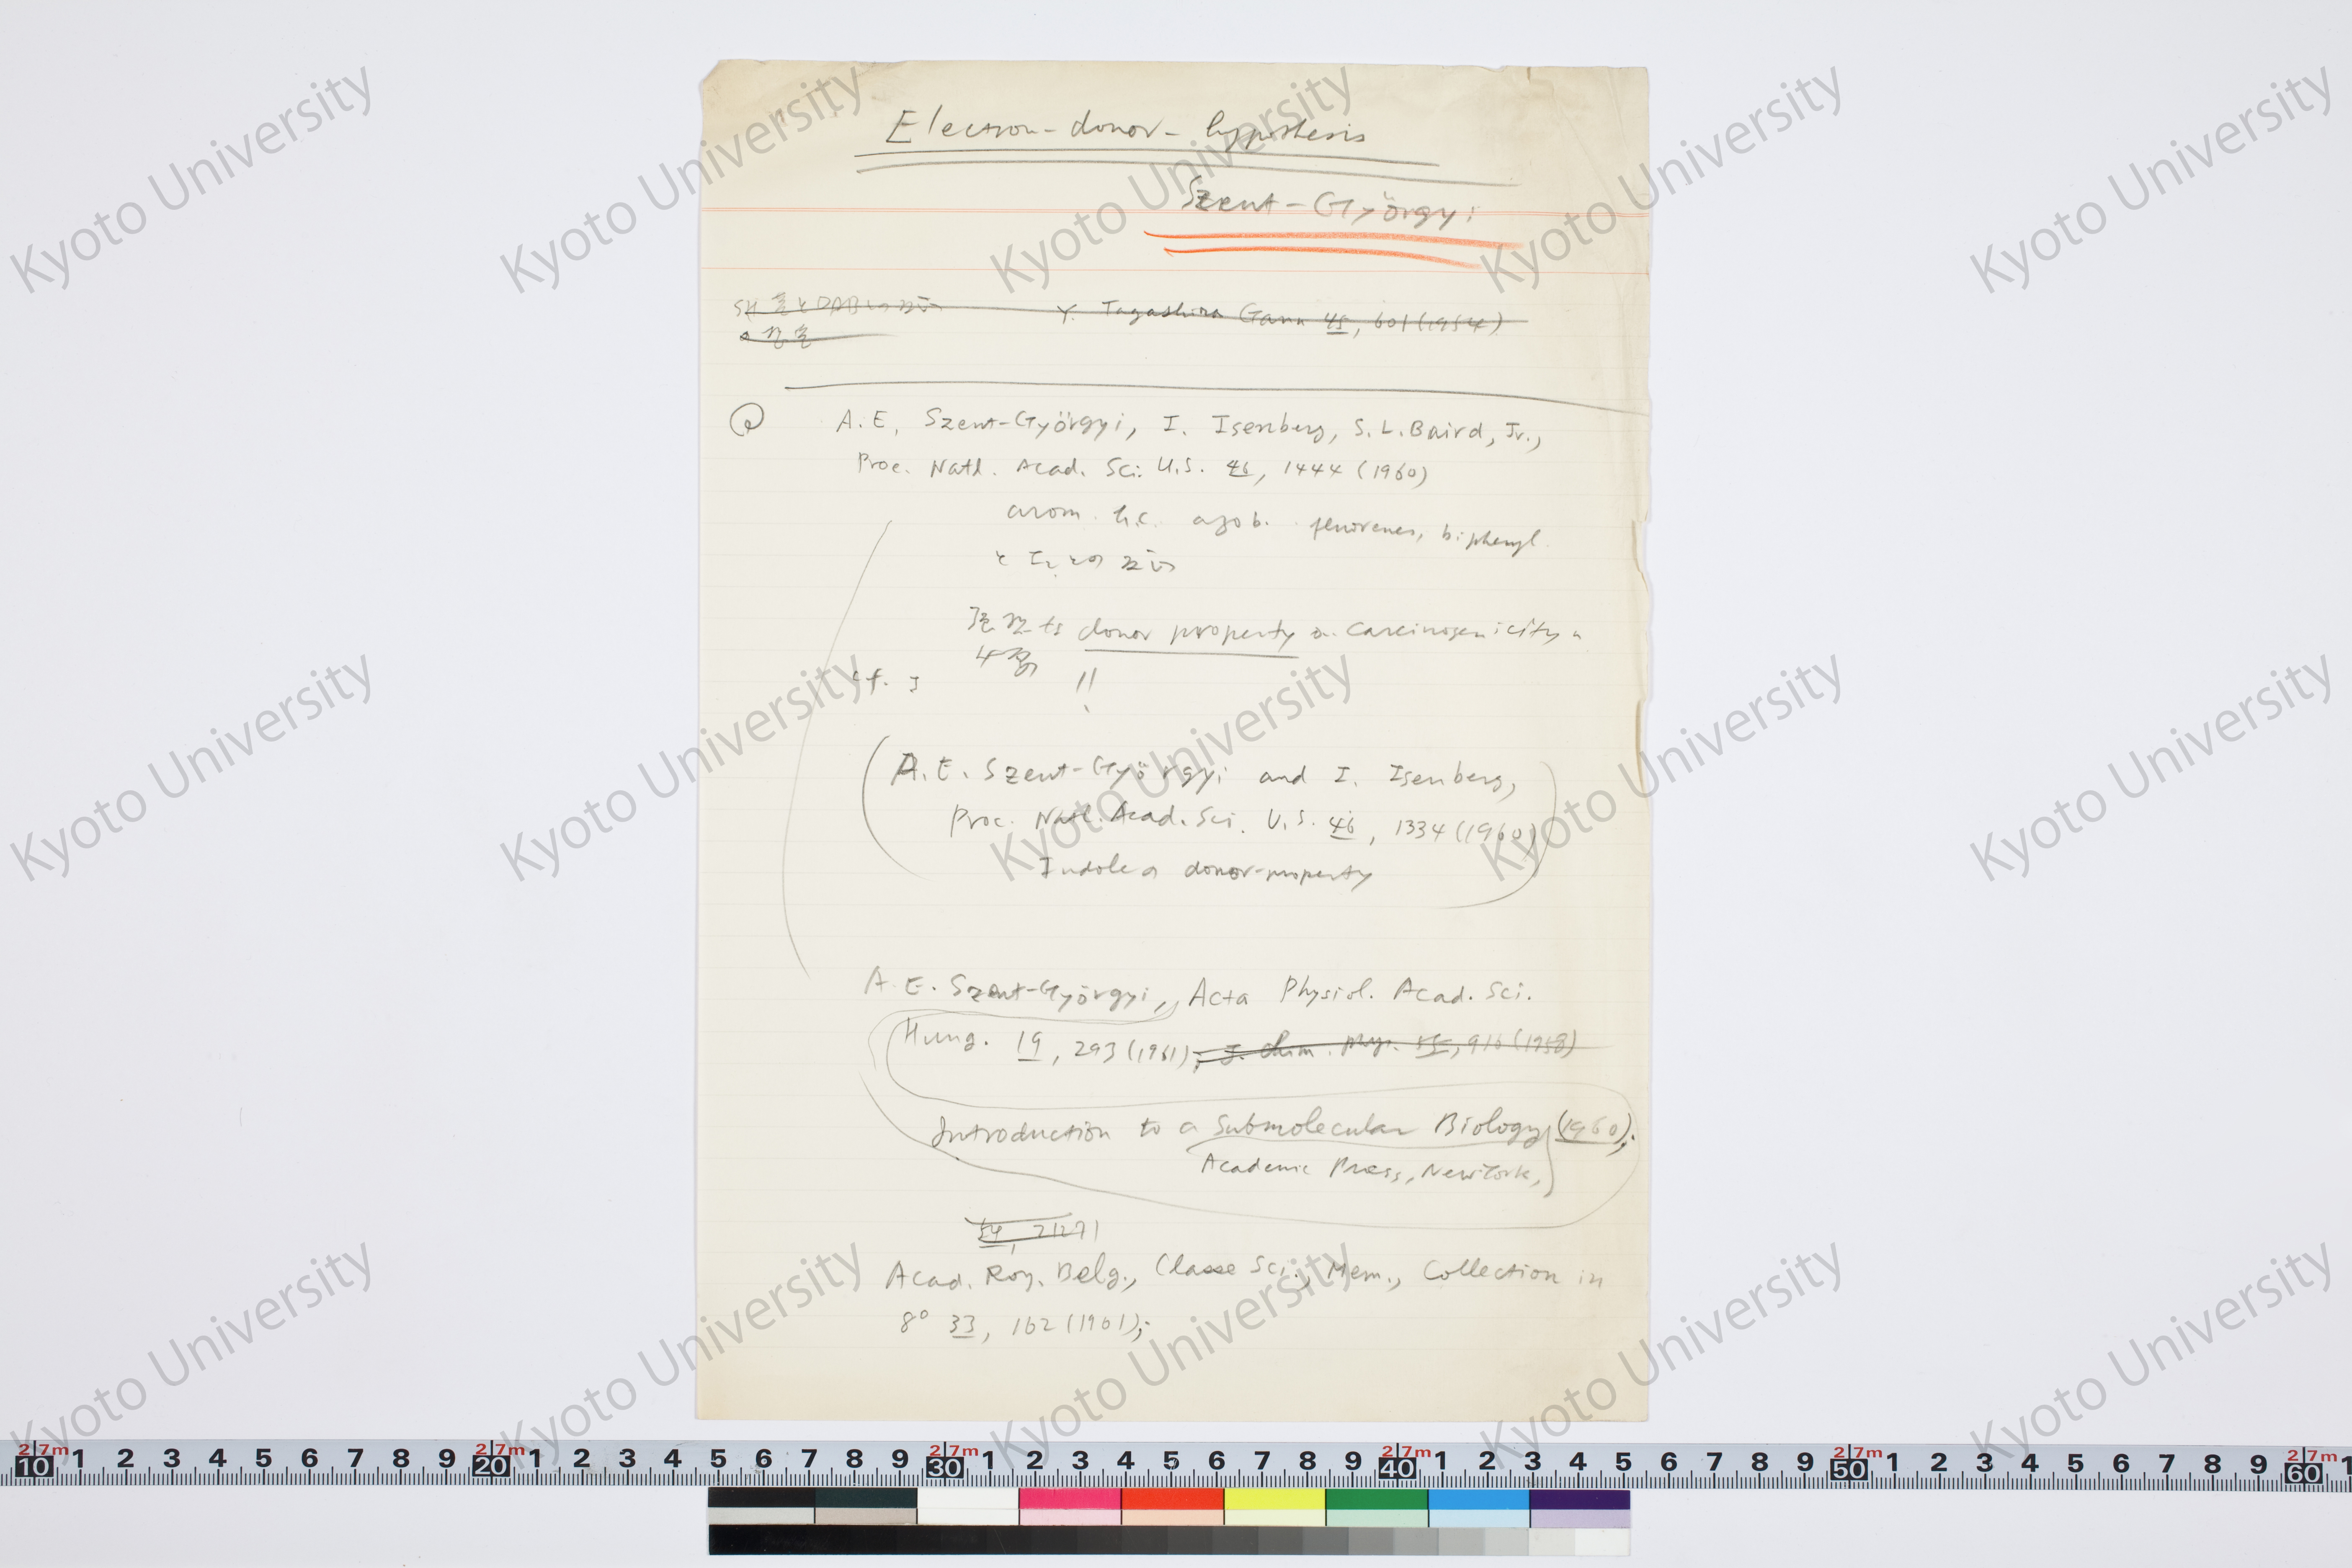 Electron-donor-hypothesis
Szent-Györgyi
Y. Tagashira Gann 45, 601 (1954)
A.E. Szent-Györgyi, I. Isenberg, S.L. Baird, Jr.,
Proc. Natl. Acad. Sci. U.S. 46, 1444 (1960)
arom. h.c. azob. fluorenes, biphenyl
と I₂ との 反応
donor property carcinogenicity
cf.
!!
(A.E. Szent-Györgyi and I. Isenberg,
Proc. Natl. Acad. Sci. U.S. 46, 1334 (1960)
Indole の donor-property)
A.E. Szent-Györgyi, Acta Physiol. Acad. Sci.
Hung. 19, 293 (1961); J. chim. phys. 55, 916 (1958)
Introduction to a Submolecular Biology (1960);
Academic Press, New York,
Acad. Roy. Belg., Classe Sci., Mem., Collection in
8° 33, 162 (1961);
Kyoto University